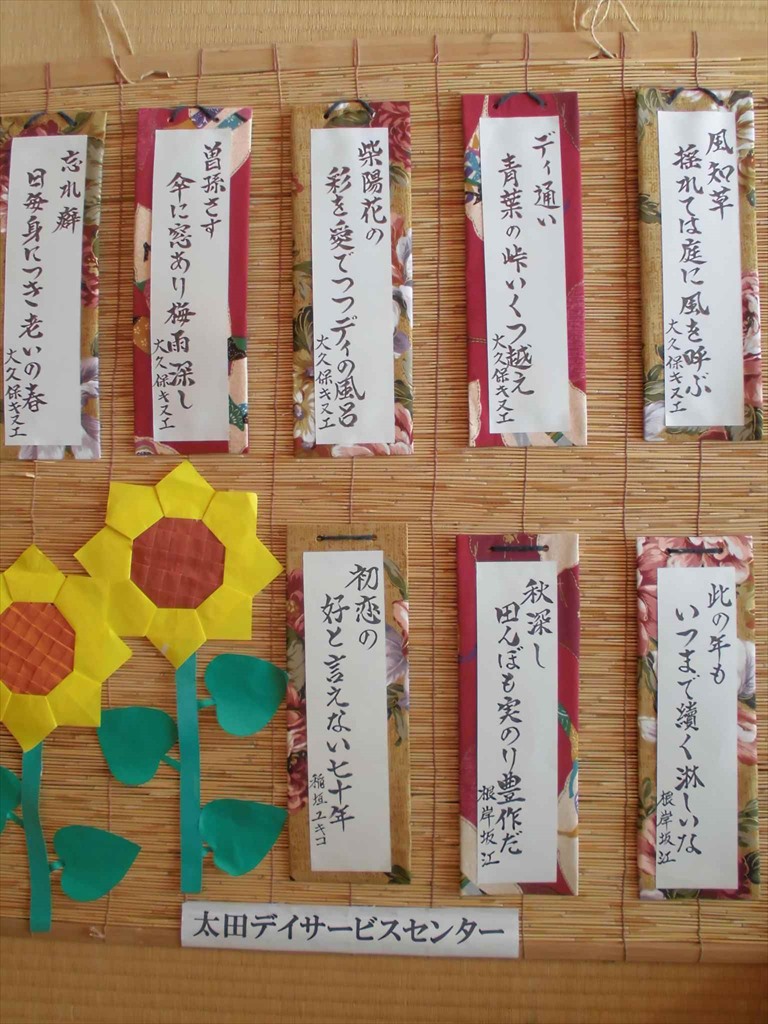 風知草
揺れては庭に風を呼ぶ
大久保キヌエ
デイ通い
青葉の峠いくつ越え
大久保キヌエ
柴陽花の
彩を愛でつつデイの風呂
大久保キヌエ
曽孫さす
傘に窓あり梅雨深し
大久保キヌエ
忘れ癖
日毎身につき老いの春
大久保キヌエ
此の年も
いつまで續く淋しいな
根岸坂江
秋深し
田んぼも実のり豊作だ
根岸坂江
初恋の
好と言えない七十年
稲垣ユキコ
太田デイサービスセンター